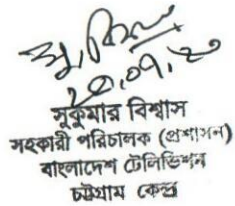 ২০.০৭.২০
সুকুমার বিশ্বাস
সহকারী পরিচালক (প্রশাসন)
বাংলাদেশ টেলিভিশন
চট্টগ্রাম কেন্দ্র